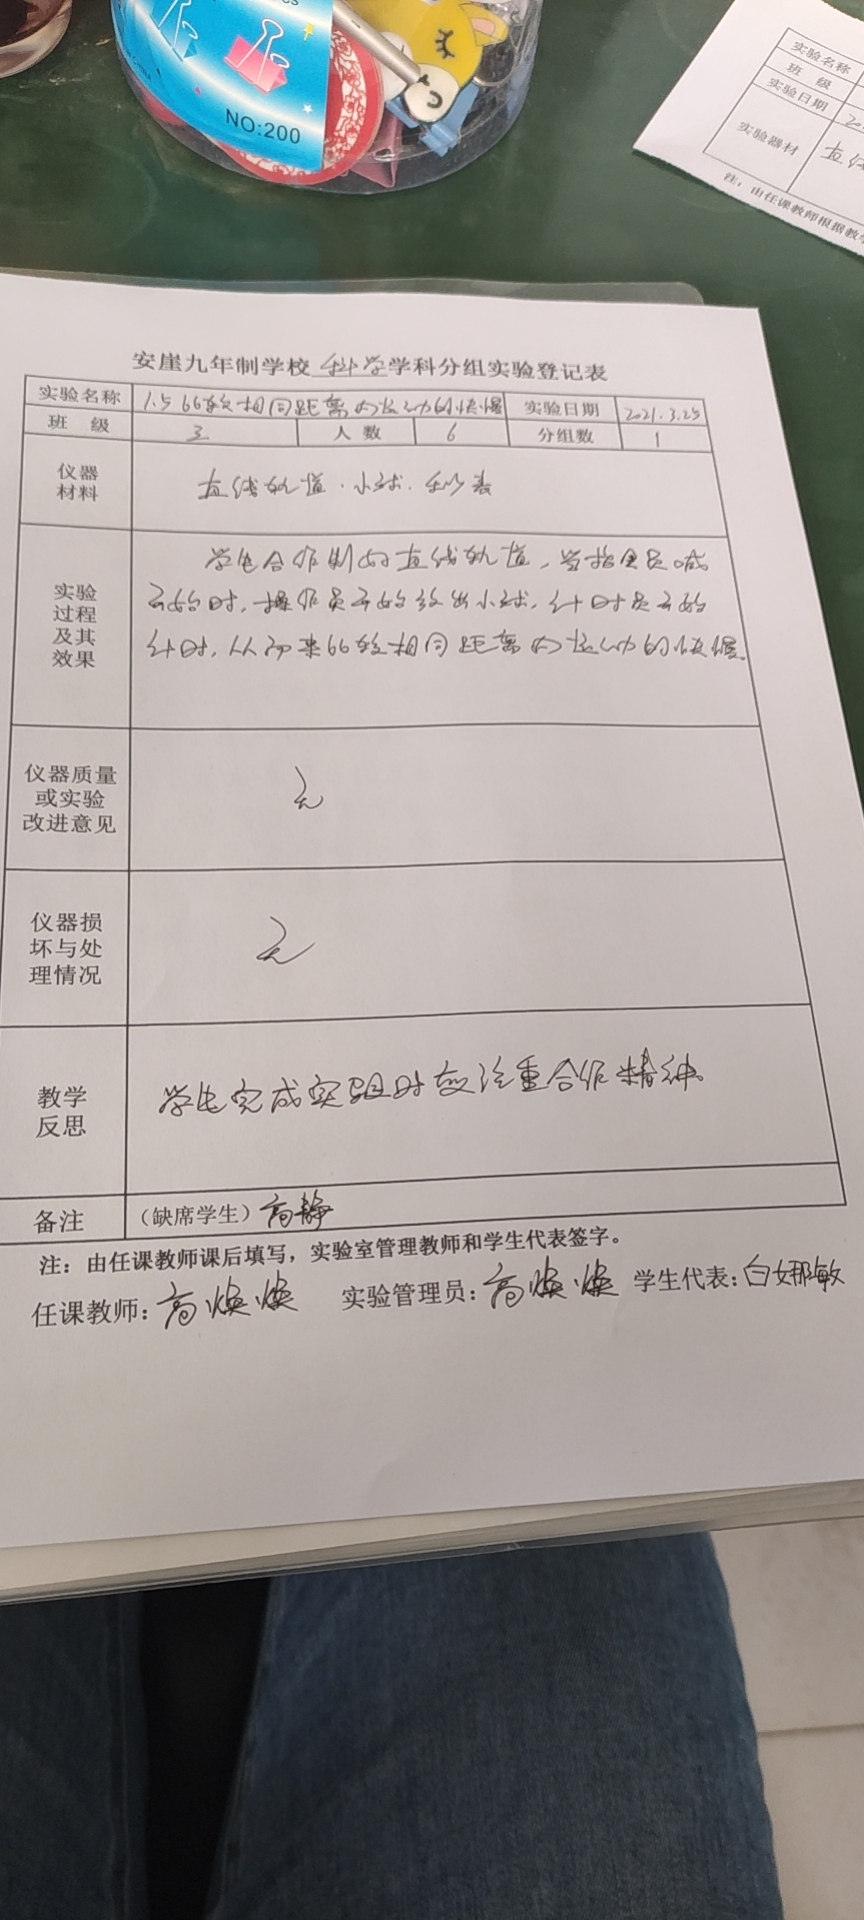 NO:200
实验名称
班 级
实验日期
实验器材
注：由任课教师根据教学
安崖九年制学校 科学 学科分组实验登记表
实验名称 1.5比较相同距离内运动的快慢 实验日期 2021.3.25
班 级 3 人 数 6 分组数 1
仪器
材料
直线轨道.小球.秒表
实验
过程
及其
效果
学生合作制好直线轨道，当指令员喊
开始时,操作员开始放出小球,计时员开始
计时,从而来比较相同距离内运动的快慢。
仪器质量
或实验
改进意见
无
仪器损
坏与处
理情况
无
教学
反思
学生完成实验时应注重合作精神。
备注 （缺席学生）高静
注：由任课教师课后填写，实验室管理教师和学生代表签字。
任课教师：高焕焕 实验管理员：高焕焕 学生代表：白娜敏